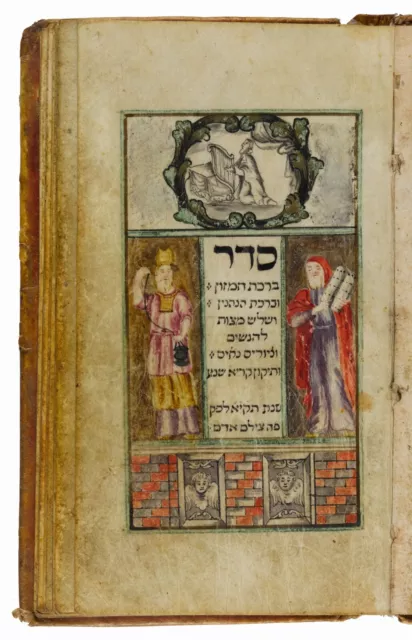 סדר
ברכת המזון
וברכת הנהנין
ושלש מצות
להנשים
וציורים נאים
ותיקון קריא שמע
שנת תקיא לפק
פה צילם